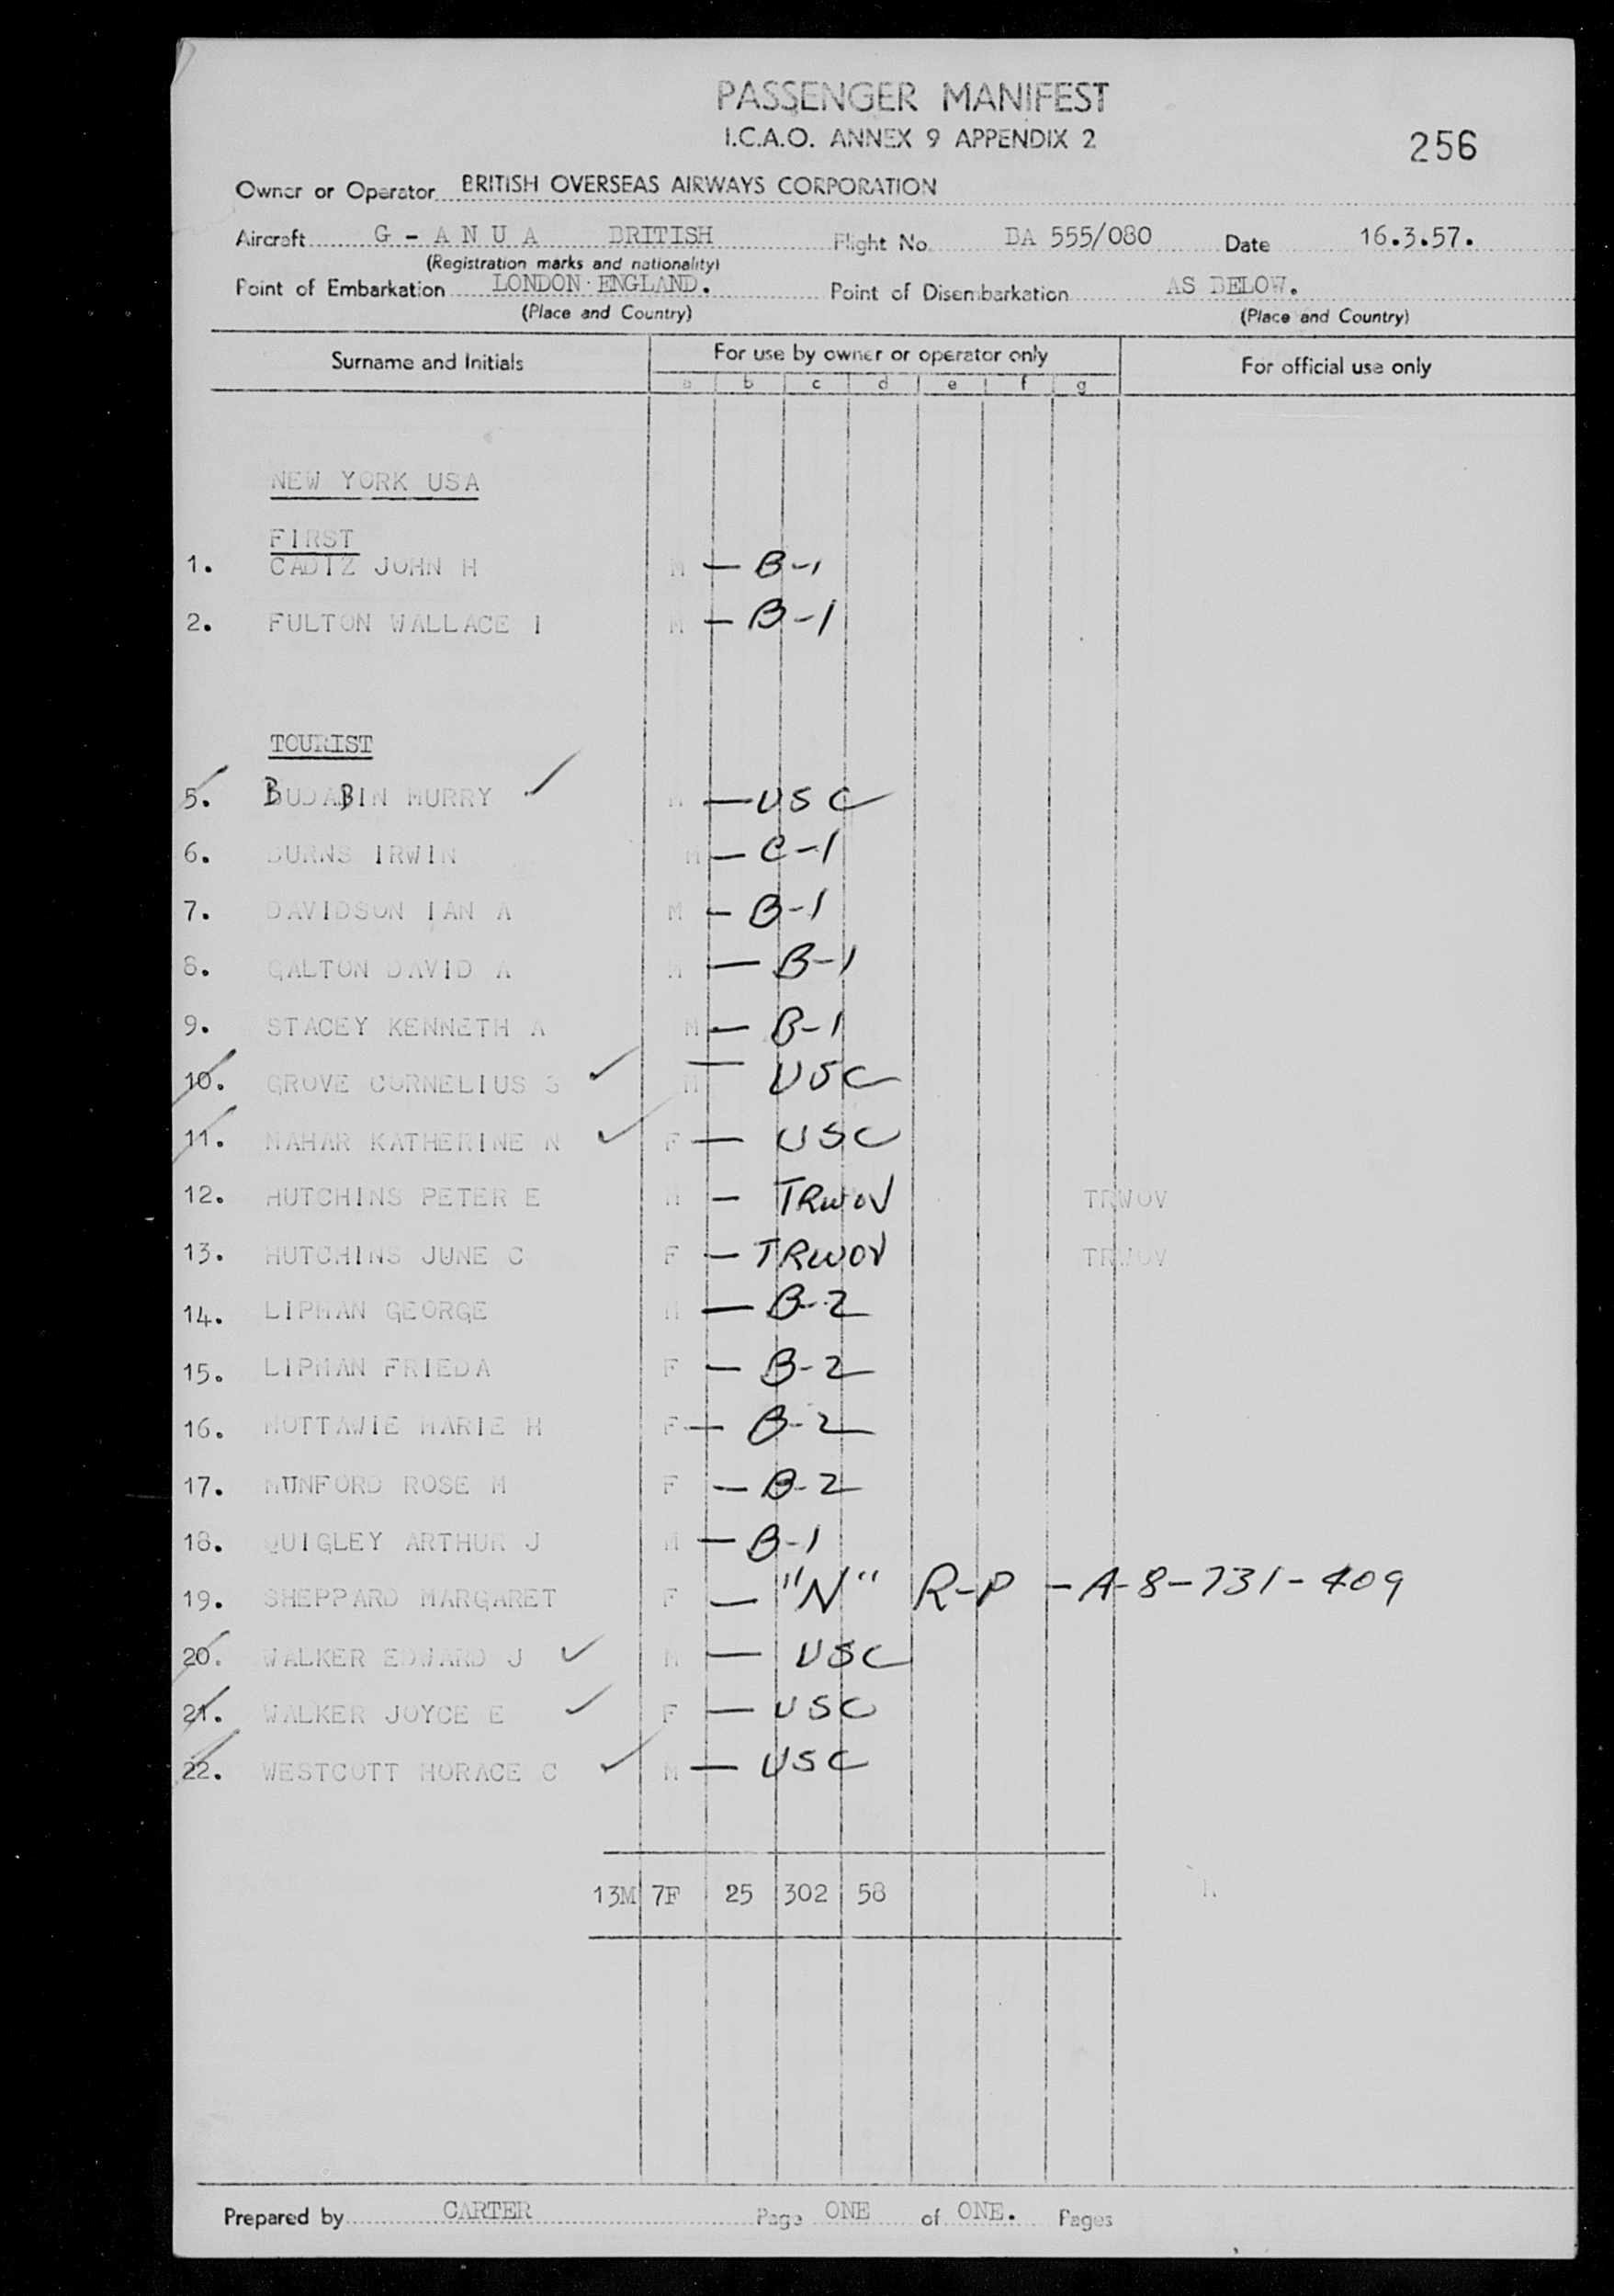 PASSENGER MANIFEST
I.C.A.O. ANNEX 9 APPENDIX 2
256
Owner or Operator BRITISH OVERSEAS AIRWAYS CORPORATION
Aircraft G - A N U A BRITISH Flight No. BA 555/080 Date 16.3.57.
(Registration marks and nationality)
Point of Embarkation LONDON ENGLAND. Point of Disembarkation AS BELOW.
(Place and Country) (Place and Country)
Surname and Initials For use by owner or operator only For official use only
a b c d e f g
NEW YORK USA
FIRST
1. CADIZ JOHN H M — B-1
2. FULTON WALLACE I M — B-1
TOURIST
5. BUDABIN MURRY M — USC
6. BURNS IRWIN M — C-1
7. DAVIDSON IAN A M — B-1
8. GALTON DAVID A M — B-1
9. STACEY KENNETH A M — B-1
10. GROVE CORNELIUS G M — USC
11. MAHAR KATHERINE N F — USC
12. HUTCHINS PETER E M — TRWOV TRWOV
13. HUTCHINS JUNE C F — TRWOV TRWOV
14. LIPMAN GEORGE M — B-2
15. LIPMAN FRIEDA F — B-2
16. MOTTAWIE MARIE H F — B-2
17. MUNFORD ROSE M F — B-2
18. QUIGLEY ARTHUR J M — B-1
19. SHEPPARD MARGARET F — "N" R-P - A-8-731-409
20. WALKER EDWARD J M — USC
21. WALKER JOYCE E F — USC
22. WESTCOTT HORACE C M — USC
13M 7F 25 302 58
Prepared by CARTER Page ONE of ONE. Pages